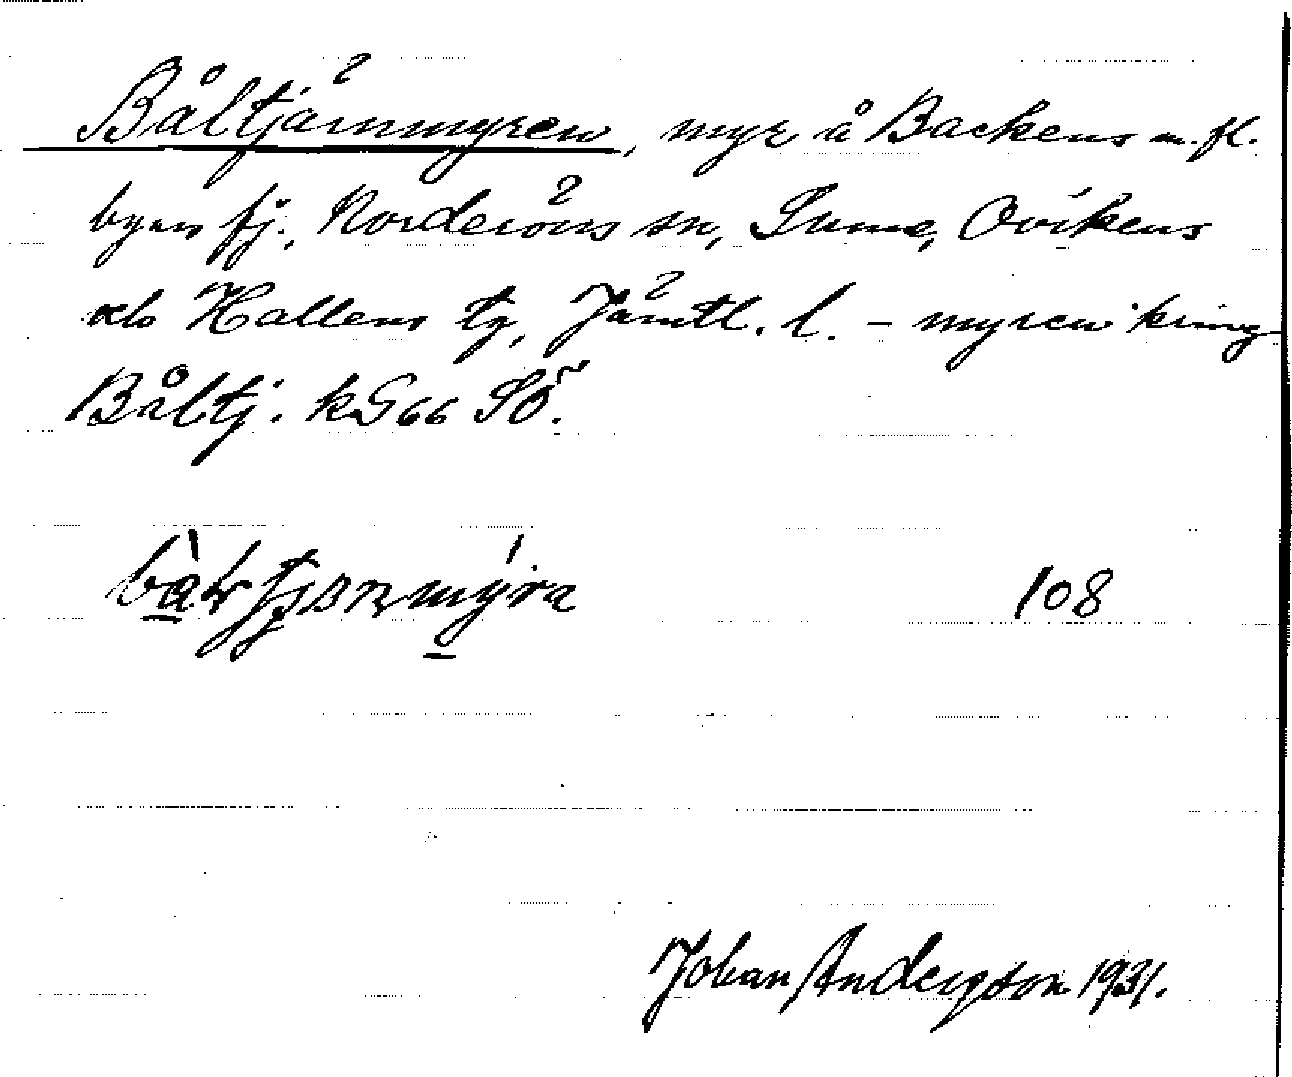 Båltjärnmyren, myr å Backens m. fl.
byars fj., Norderöns sn, Sunne, Ovikens
o Hallens tg, Jämtl. l. – myren kring
Båltj. kG66 SÖ.
108
Johan Anderson 1931.